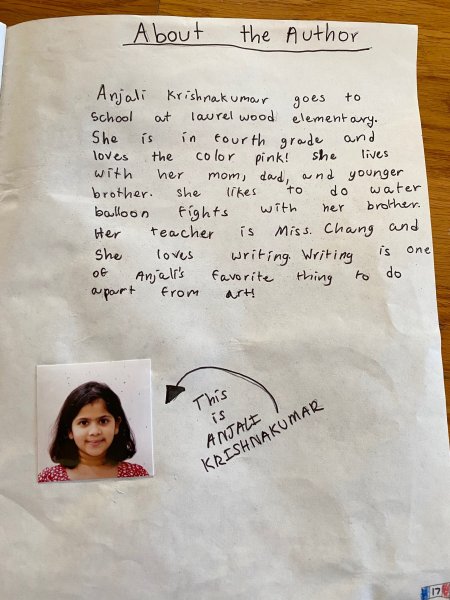 About the Author
Anjali Krishnakumar goes to
School at laurelwood elementary.
She is in fourth grade and
loves the color pink! She lives
with her mom, dad, and younger
brother. She likes to do water
balloon fights with her brother.
Her teacher is Miss. Chang and
She loves writing. Writing is one
of Anjali's favorite thing to do
apart from art!
This
is
ANJALI
KRISHNAKUMAR
17